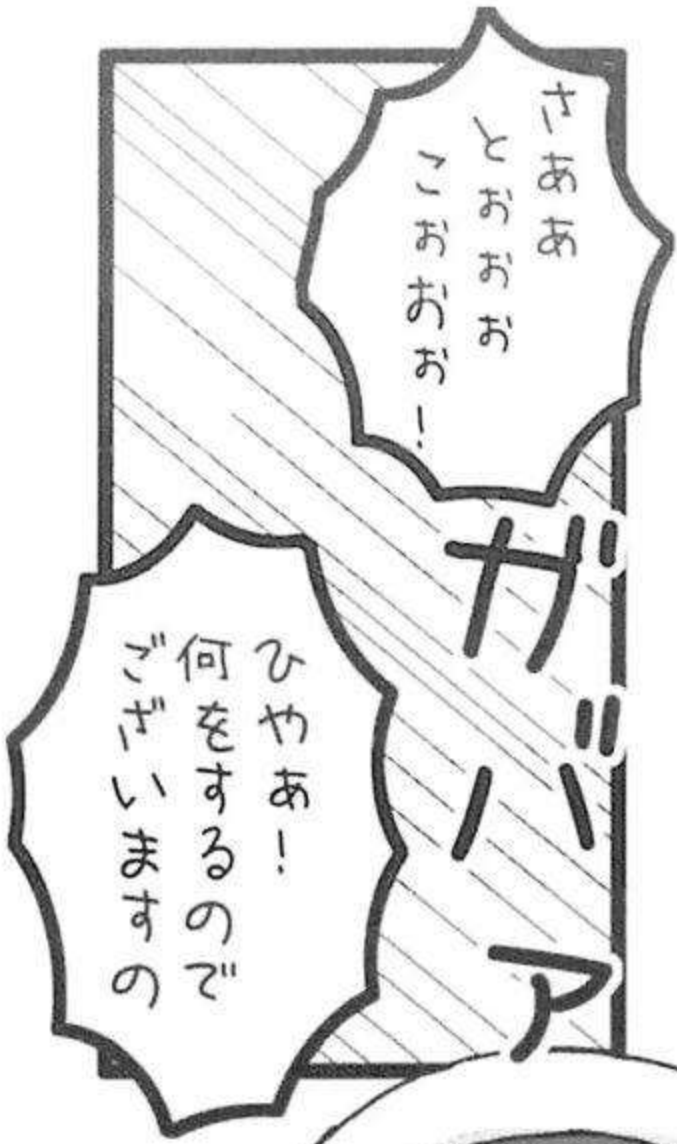 さああ
とぉぉぉ
こぉおぉ！
ガバァ
ひやあ！
何をするので
ございますの